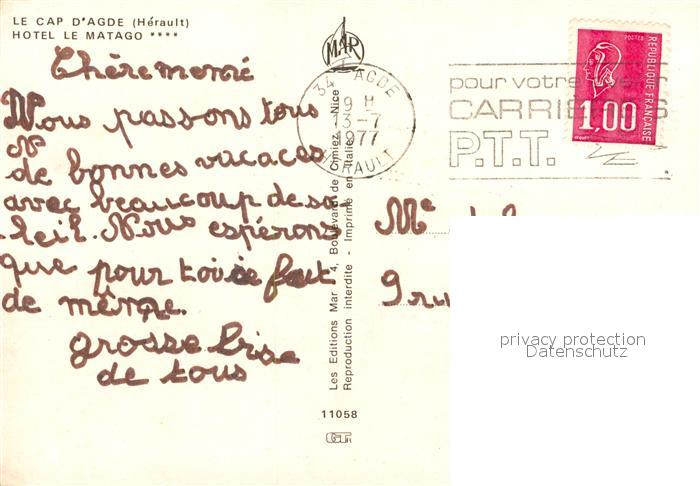 LE CAP D'AGDE (Hérault)
HOTEL LE MATAGO ****
MAR
34 AGDE
9 H
13-7
1977
HERAULT
pour votre
CARRIERES
P.T.T.
POSTES
REPUBLIQUE FRANÇAISE
1,00
Chère memé
Nous passons tous
de bonnes vacaces
avec beaucoup de so-
leil. Nous espérons
que pour toi ce fait
de même.
grosse bise
de tous
Me
9 rue
Les Editions Mar - 4, Boulevard de Cimiez, Nice
Reproduction interdite - Imprimé en Italie
11058
privacy protection
Datenschutz